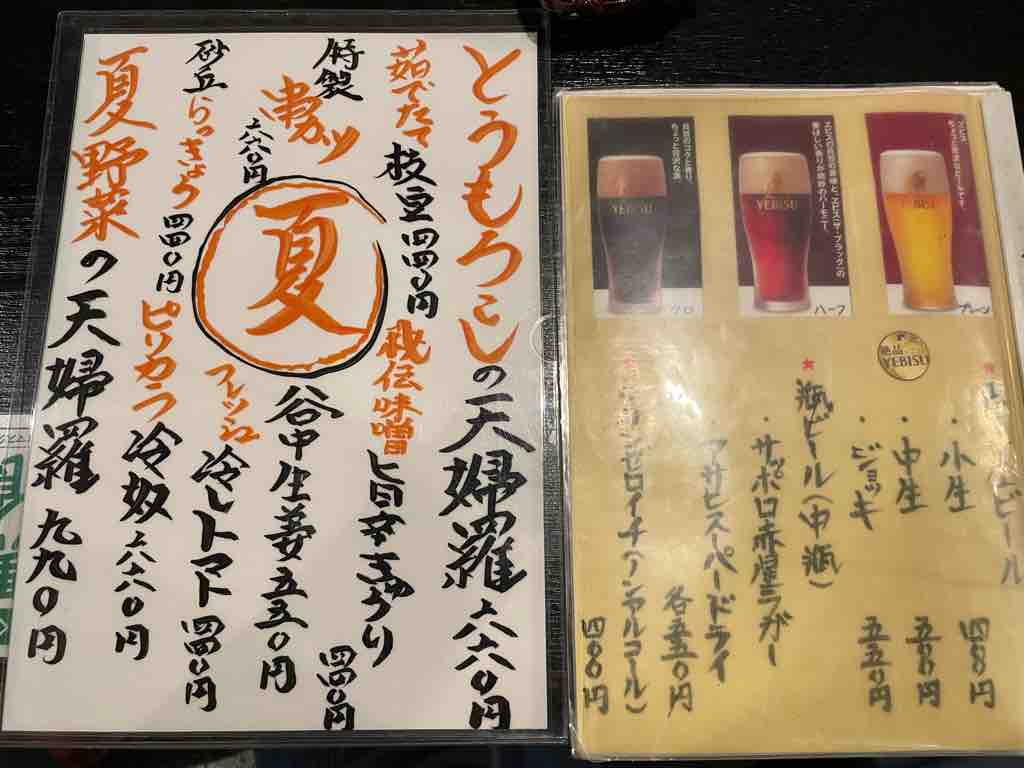 とうもろこしの天婦羅 六六〇円
茹でたて 枝豆 四四〇円
秘伝味噌 旨辛きゅうり 四四〇円
特製 串カツ 六六〇円
夏
谷中生姜 五五〇円
フレッシュ 冷しトマト 四四〇円
砂丘らっきょう 四四〇円
ピリカラ 冷奴 六六〇円
夏野菜の天婦羅 九九〇円
ヱビス
YEBISU
プレーン
YEBISU
ハーフ
YEBISU
クロ
絶品
YEBISU
ビール
・小生 四〇〇円
・中生 五〇〇円
・ジョッキ 五五〇円
★瓶ビール(中瓶)
・サッポロ赤星ラガー
アサヒスーパードライ
各五五〇円
四〇〇円